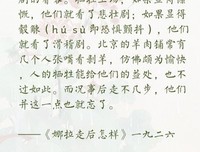 慨，他们就看了悲壮剧；如果显得
觳觫（hú sù 即恐惧颤抖），他们
就看了滑稽剧。北京的羊肉铺常有
几个人张嘴看剥羊，仿佛颇为愉快
，人的牺牲能给他们的益处，也不
过如此。而况事后走不几步，他们
并这一点也就忘了。
——《娜拉走后怎样》一九二六